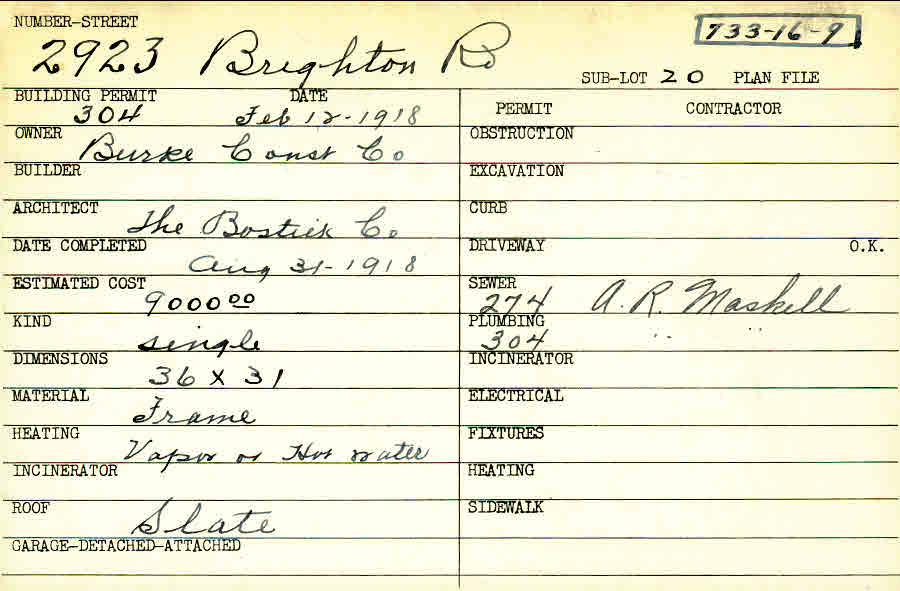 NUMBER-STREET
733-16-9
2923 Brighton Rd
SUB-LOT 20 PLAN FILE
BUILDING PERMIT DATE
304 Feb 12-1918
PERMIT CONTRACTOR
OWNER
Burke Const Co
OBSTRUCTION
BUILDER
EXCAVATION
ARCHITECT
The Bostick Co
CURB
DATE COMPLETED
Aug 31-1918
DRIVEWAY O.K.
ESTIMATED COST
9000 00
SEWER
274 A. R. Maskell
KIND
single
PLUMBING
304 " "
DIMENSIONS
36 x 31
INCINERATOR
MATERIAL
Frame
ELECTRICAL
HEATING
Vapor or Hot water
FIXTURES
INCINERATOR
HEATING
ROOF
Slate
SIDEWALK
GARAGE-DETACHED-ATTACHED